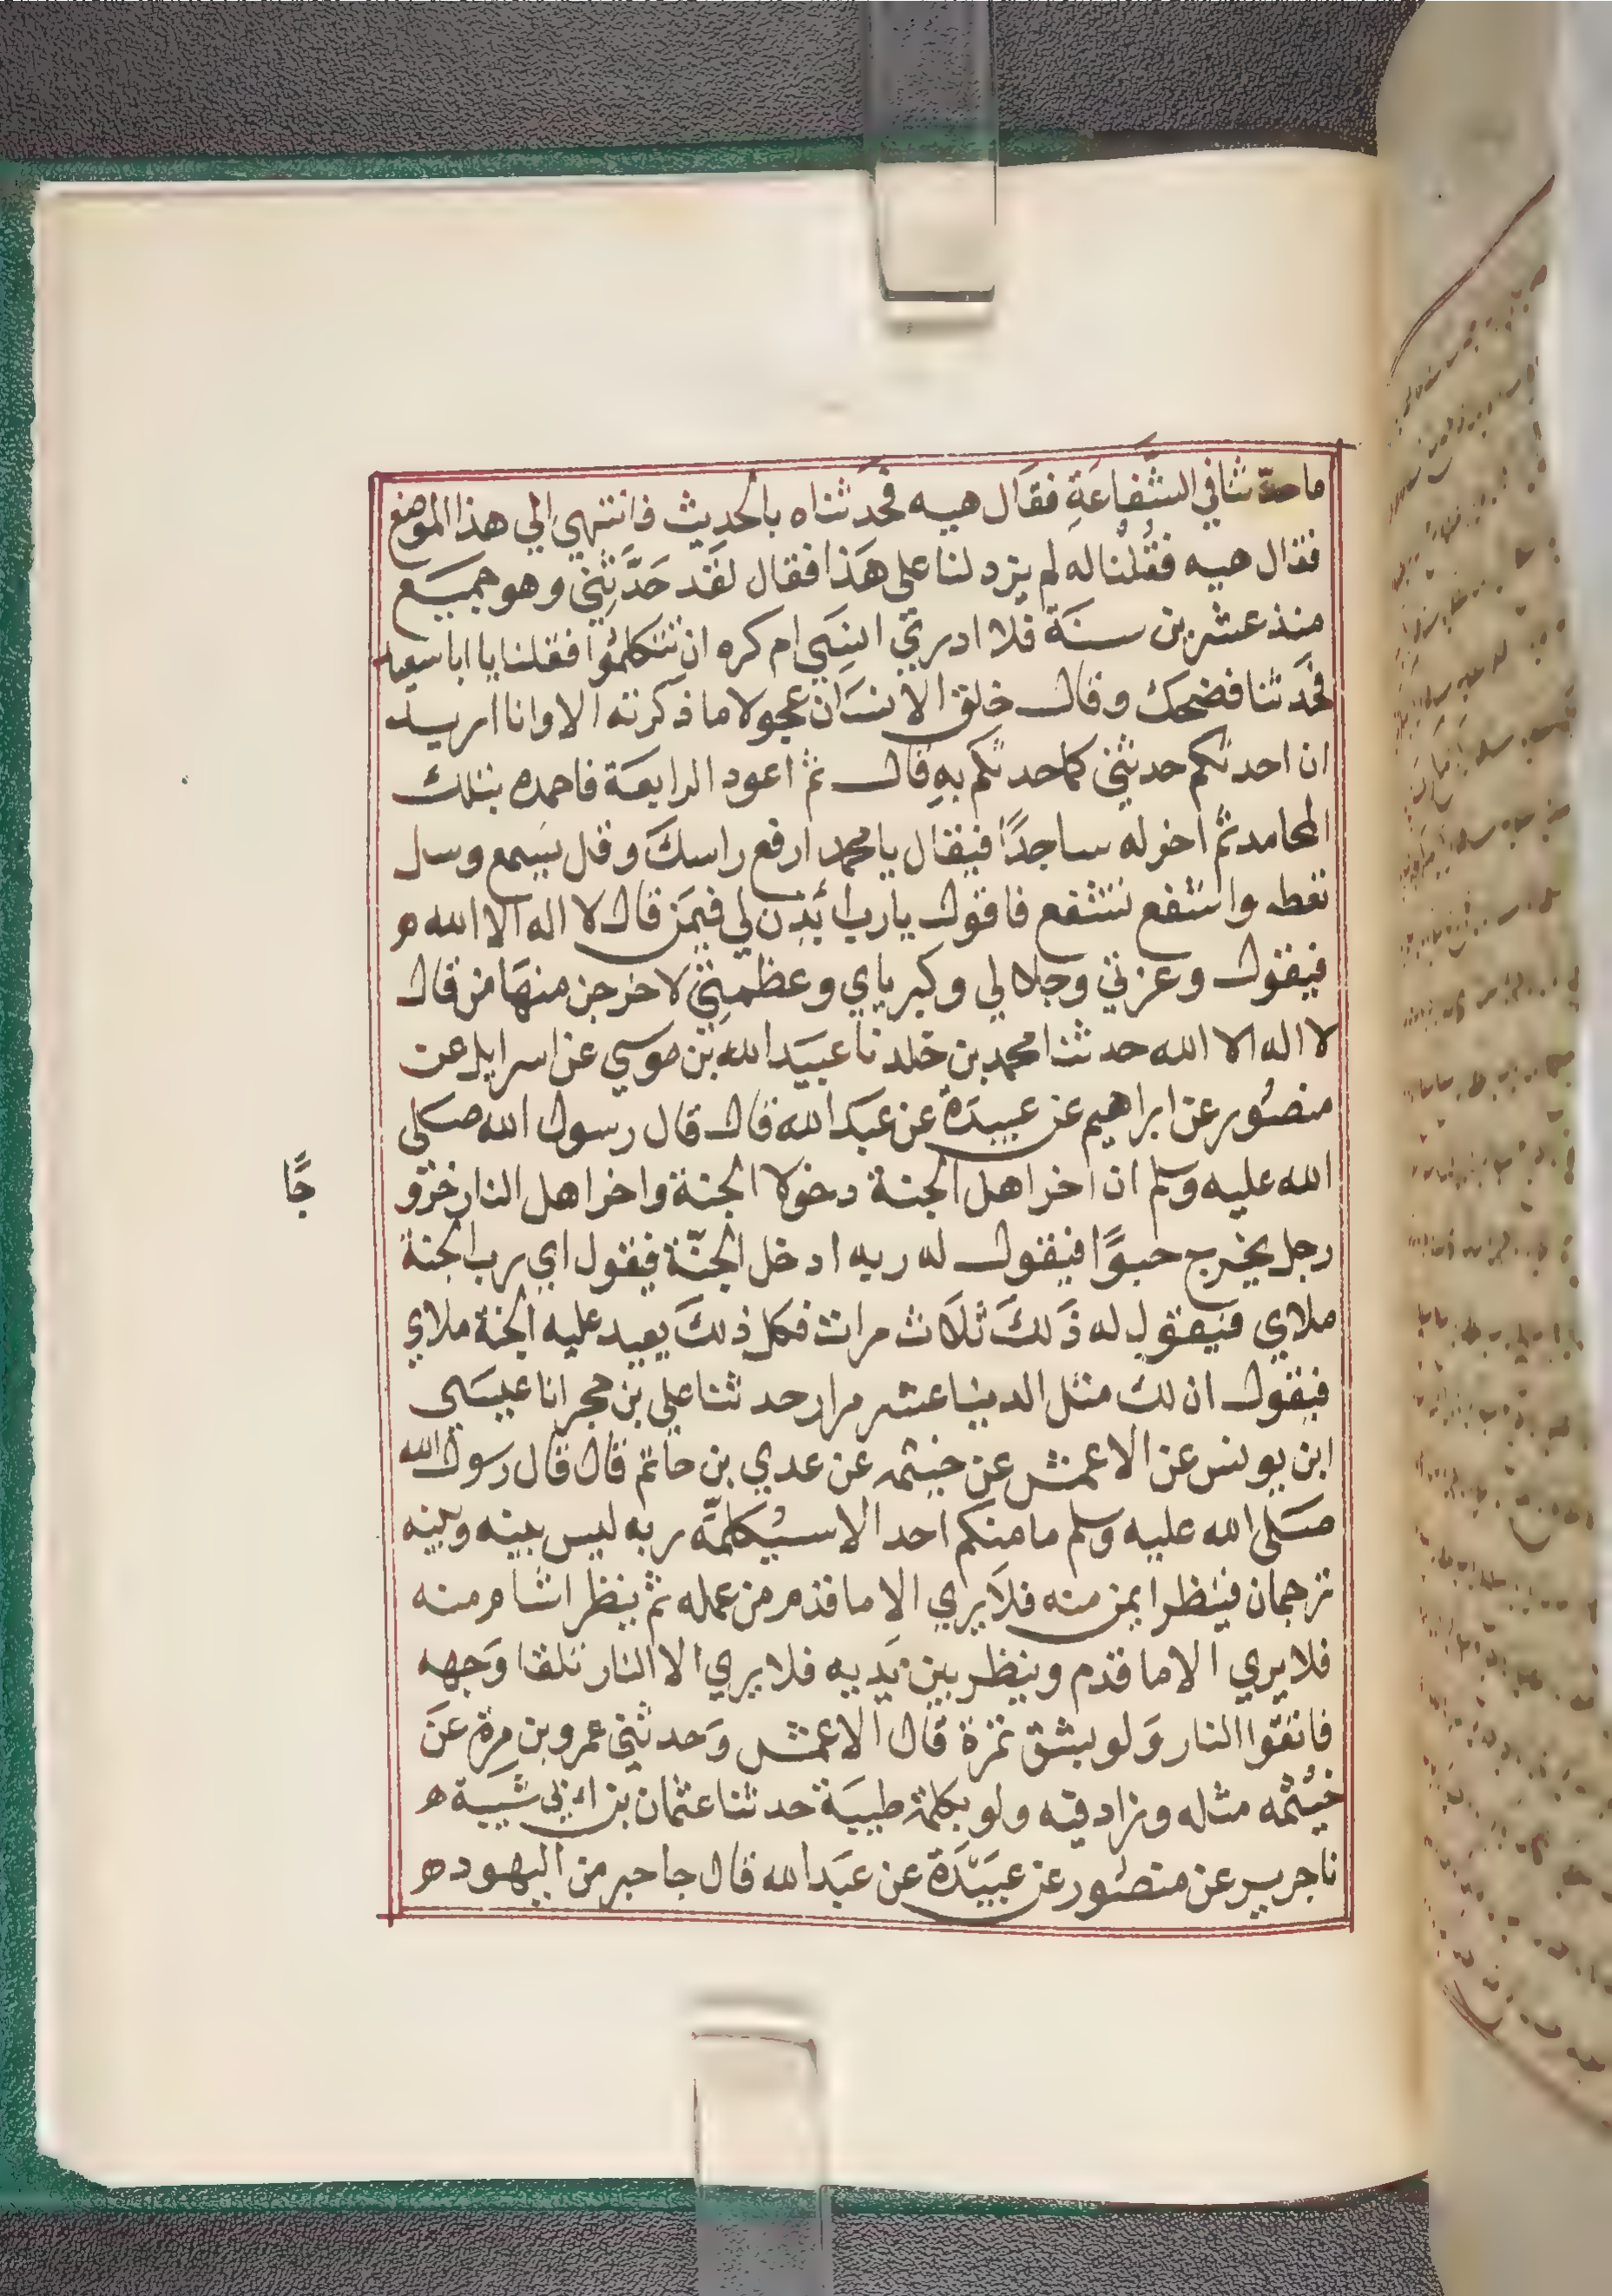 ما حدّثنا في الشّفاعَةِ فقال هيه فحَدثناه بالحديث فانتهي الي هذا الموضع
فقال هيه فقُلْنا له لم يزد لنا علي هَذا فقال لقَد حَدَّثِني وهو جميَع
منذ عشرين سنَة فلا ادري انسِيَ ام كره ان تتكلمُوا فقلنا يا ابا سعيد
فحَدثنا فضحك وقال خلق الانسَان عجولا ما ذكرته الا وانا اريد
ان احدثكم حدثني كما حدثكم بهِ قال ثم اعود الرابعَة فاحمده بتلك
المحامد ثم اخر له ساجدًا فيقال يا محمد ارفع راسكَ وقل يسَمع وسل
تعط واشفع تشفع فاقول يا رب ائذن لي فيمَن قال لا اله الا الله ه
فيقول وعزتي وجلالي وكبرياي وعظمتِي لاخرجن منهَا من قال
لا اله الا الله حدثنا محمد بن خلد نا عبيَد الله بن موسي عن اسرايل عن
منصُور عن ابراهيم عن عبيدَة عن عبَد الله قال قال رسول الله صَلي
الله عليه وسلم ان اخر اهل الجنة دخولا الجنة واخر اهل النار خرو
جًا
رجل يخرج حبوًا فيقول له ربه ادخل الجنّة فيقول اي رب الجنة
ملاي فيَقول له ذَلكَ ثلَاث مرات فكل ذلكَ يعيد عليه الجنة ملاي
فيقول ان لك مثل الدنيا عشر مرار حدثنا علي بن حجر انا عيسَي
ابن يونس عن الاعمش عن خيثمه عن عدي بن حاتم قال قال رسول الله
صَلي الله عليه وسلم ما منكم احد الا سيُكلمّه ربه ليس بينه وبينه
ترجمان فينظر ايمن منه فلَا يري الا ما قدم من عمله ثم ينظر اشام منه
فلا يري الا ما قدم وينظر بين يَديه فلا يري الا النار تلقا وَجهه
فاتقوا النار وَلو بشق تمرة قال الاعمش وَحدثني عمرو بن مرة عنَ
خيُثمه مثله وزاد فيه ولو بكلمة طيبَة حدثنا عثمان بن ابي شيَبة ه
نا جرير عن منصُور عن عبيَدَة عن عبَد الله قال جا حبر من اليهود ه